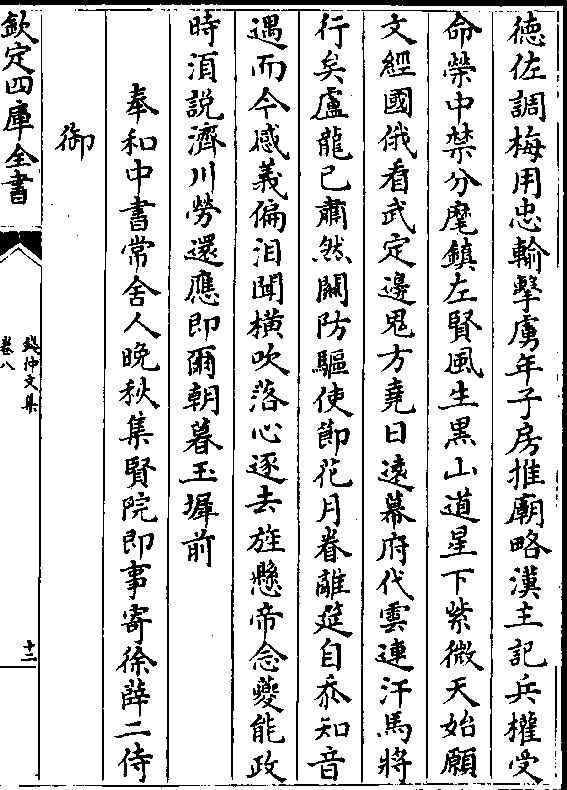 德佐調梅用忠輸擊虜年子房推廟略漢主記兵權受
命榮中禁分麾鎮左賢風生黒山道星下紫微天始願
文經國俄看武定邊鬼方堯日遠幕府代雲連汗馬將
行矣盧龍已肅然關防驅使節花月眷離筵自忝知音
遇而今感義偏泪聞橫吹落心逐去旌懸帝念夔能政
時須説濟川勞還應即爾朝暮玉墀前
奉和中書常舍人晚秋集賢院即事寄徐薛二侍
御
欽定四庫全書
錢仲文集
卷八
十二